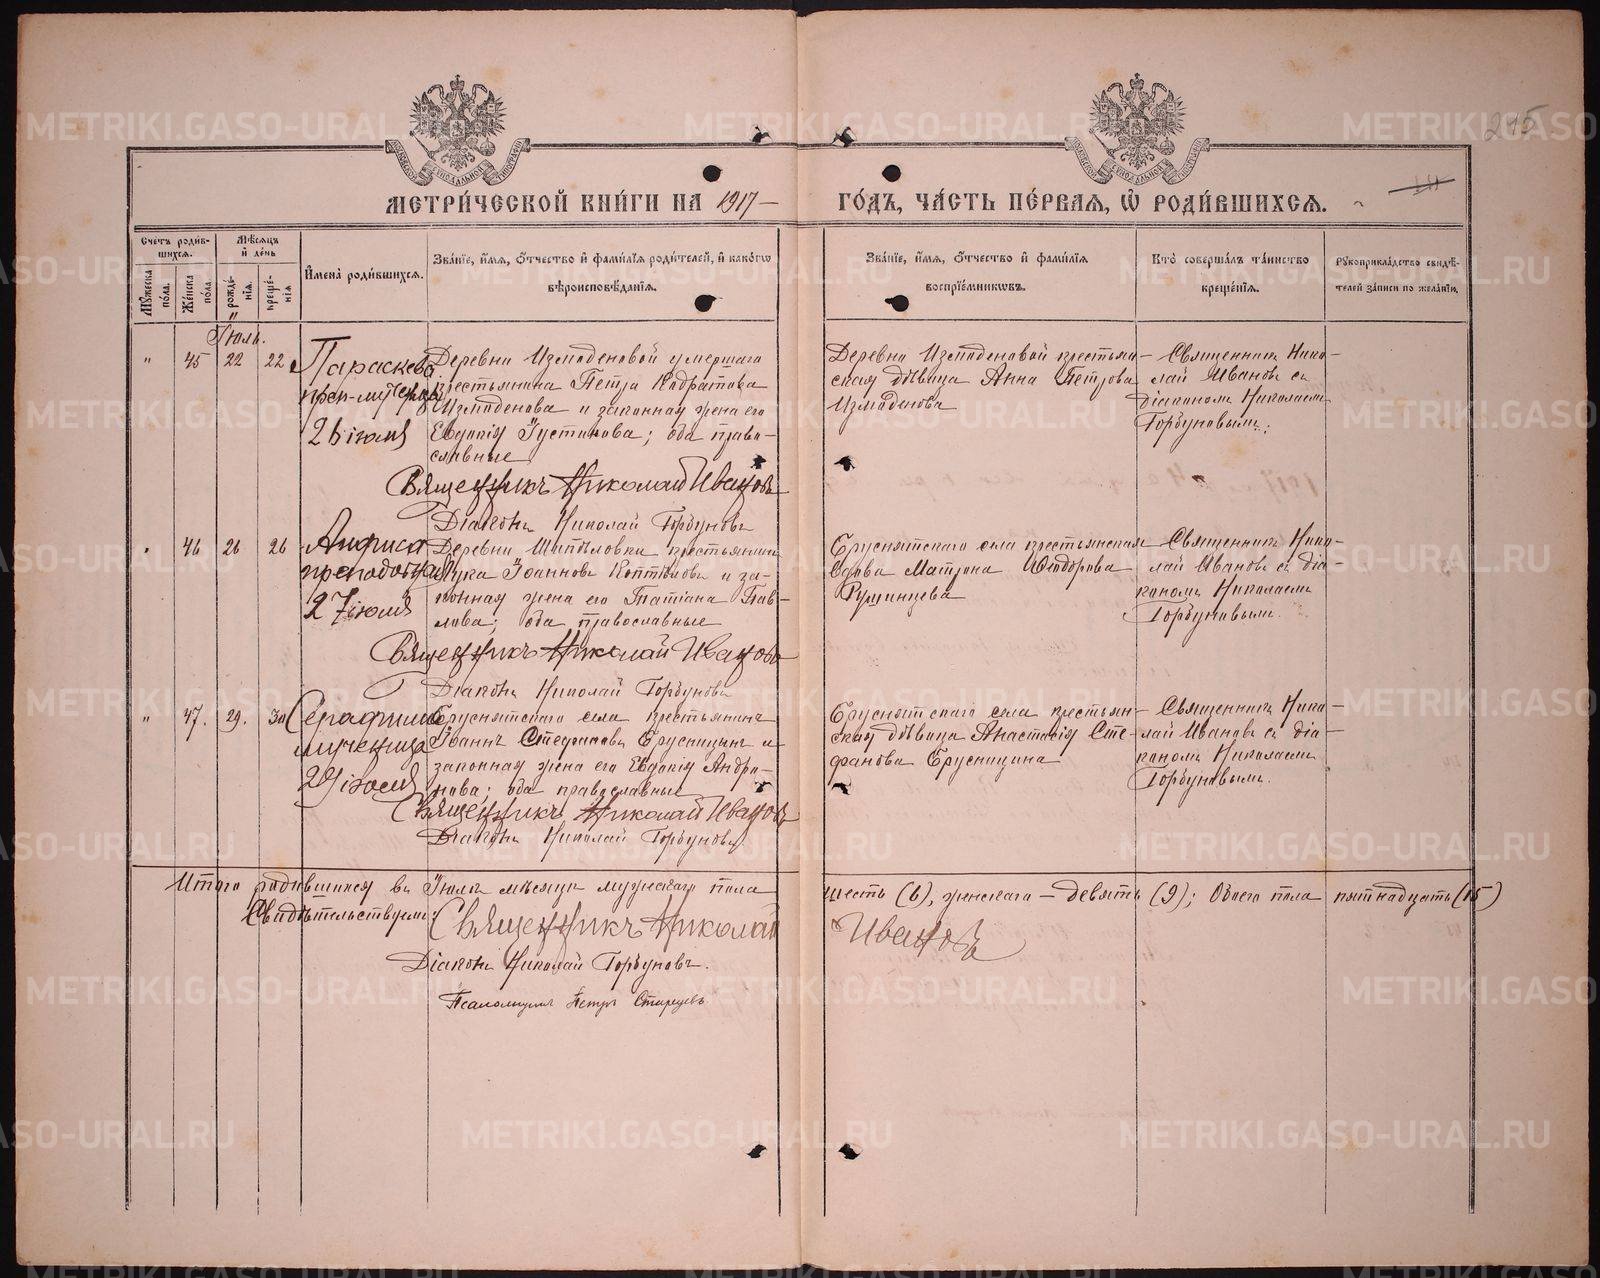 МЕТРИ́ЧЕСКОЙ КНИ́ГИ НА 1917 —
ГО́ДЪ, ЧА́СТЬ ПЕ́РВАЯ, Ѡ҆ РОДИ́ВШИХСЯ.
245
Сче́тъ роди́вшихся.
Мѣ́сяцъ и҆ де́нь
Мꙋ́жеска по́ла.
Же́нска по́ла.
рожде́нїѧ.
креще́нїѧ
И҆мена̀ роди́вшихсѧ.
Зва́нїе, и҆́мѧ, ѻ҆́тчество и҆ фами́лїѧ роди́телей, и҆ како́гѡ
вѣроисповѣ́данїѧ.
Зва́нїе, и҆́мѧ, ѻ҆́тчество и҆ фами́лїѧ
воспрїе́мниковъ.
Кто̀ соверша́лъ та́инство
креще́нїѧ.
Рꙋкоприкла́дство свидѣ́-
телей за́писи по жела́нїю.
Іюль.
" 45 22 22
Параскева
преп-мученица
26 іюля
Деревни Измоденовой умершаго
крестьянина Петра Кодратова
Измоденова и законная жена его
Евдокія Іустинова; оба право-
славные
Священникъ Николай Ивановъ
Діаконъ Николай Горбуновъ
Деревни Измоденовой крестьян-
ская дѣвица Анна Петрова
Измоденова
Священникъ Нико-
лай Ивановъ съ
діакономъ Николаемъ
Горбуновымъ.
" 46 26 26
Анфиса
преподобная
27 іюля
Деревни Шипѣловки крестьянинъ
Лука Іоанновъ Коптѣловъ и за-
конная жена его Татіана Пав-
лова; оба православные
Священникъ Николай Ивановъ
Діаконъ Николай Горбуновъ
Бруснятскаго села крестьянская
вдова Матрона Ѳеодорова
Священникъ Нико-
лай Ивановъ съ діа-
кономъ Николаемъ
Горбуновымъ.
" 47. 29. 30
Серафима
мученица
29 іюля
Бруснятскаго села крестьянинъ
Іоаннъ Стефановъ Брусницынъ и
законная жена его Евдокія Андро-
нова; оба православные
Священникъ Николай Ивановъ
Діаконъ Николай Горбуновъ
Бруснятскаго села крестьян-
ская дѣвица Анастасія Сте-
фанова Брусницына
Священникъ Нико-
лай Ивановъ съ діа-
кономъ Николаемъ
Горбуновымъ.
Итого родившихся въ Іюлѣ мѣсяцѣ мужескаго пола шесть (6), женскаго — девять (9); Обоего пола пятнадцать (15)
Свидѣтельствуемъ: Священникъ Николай Ивановъ
Діаконъ Николай Горбуновъ.
Псаломщикъ Петръ Старцевъ
METRIKI.GASO-URAL.RU